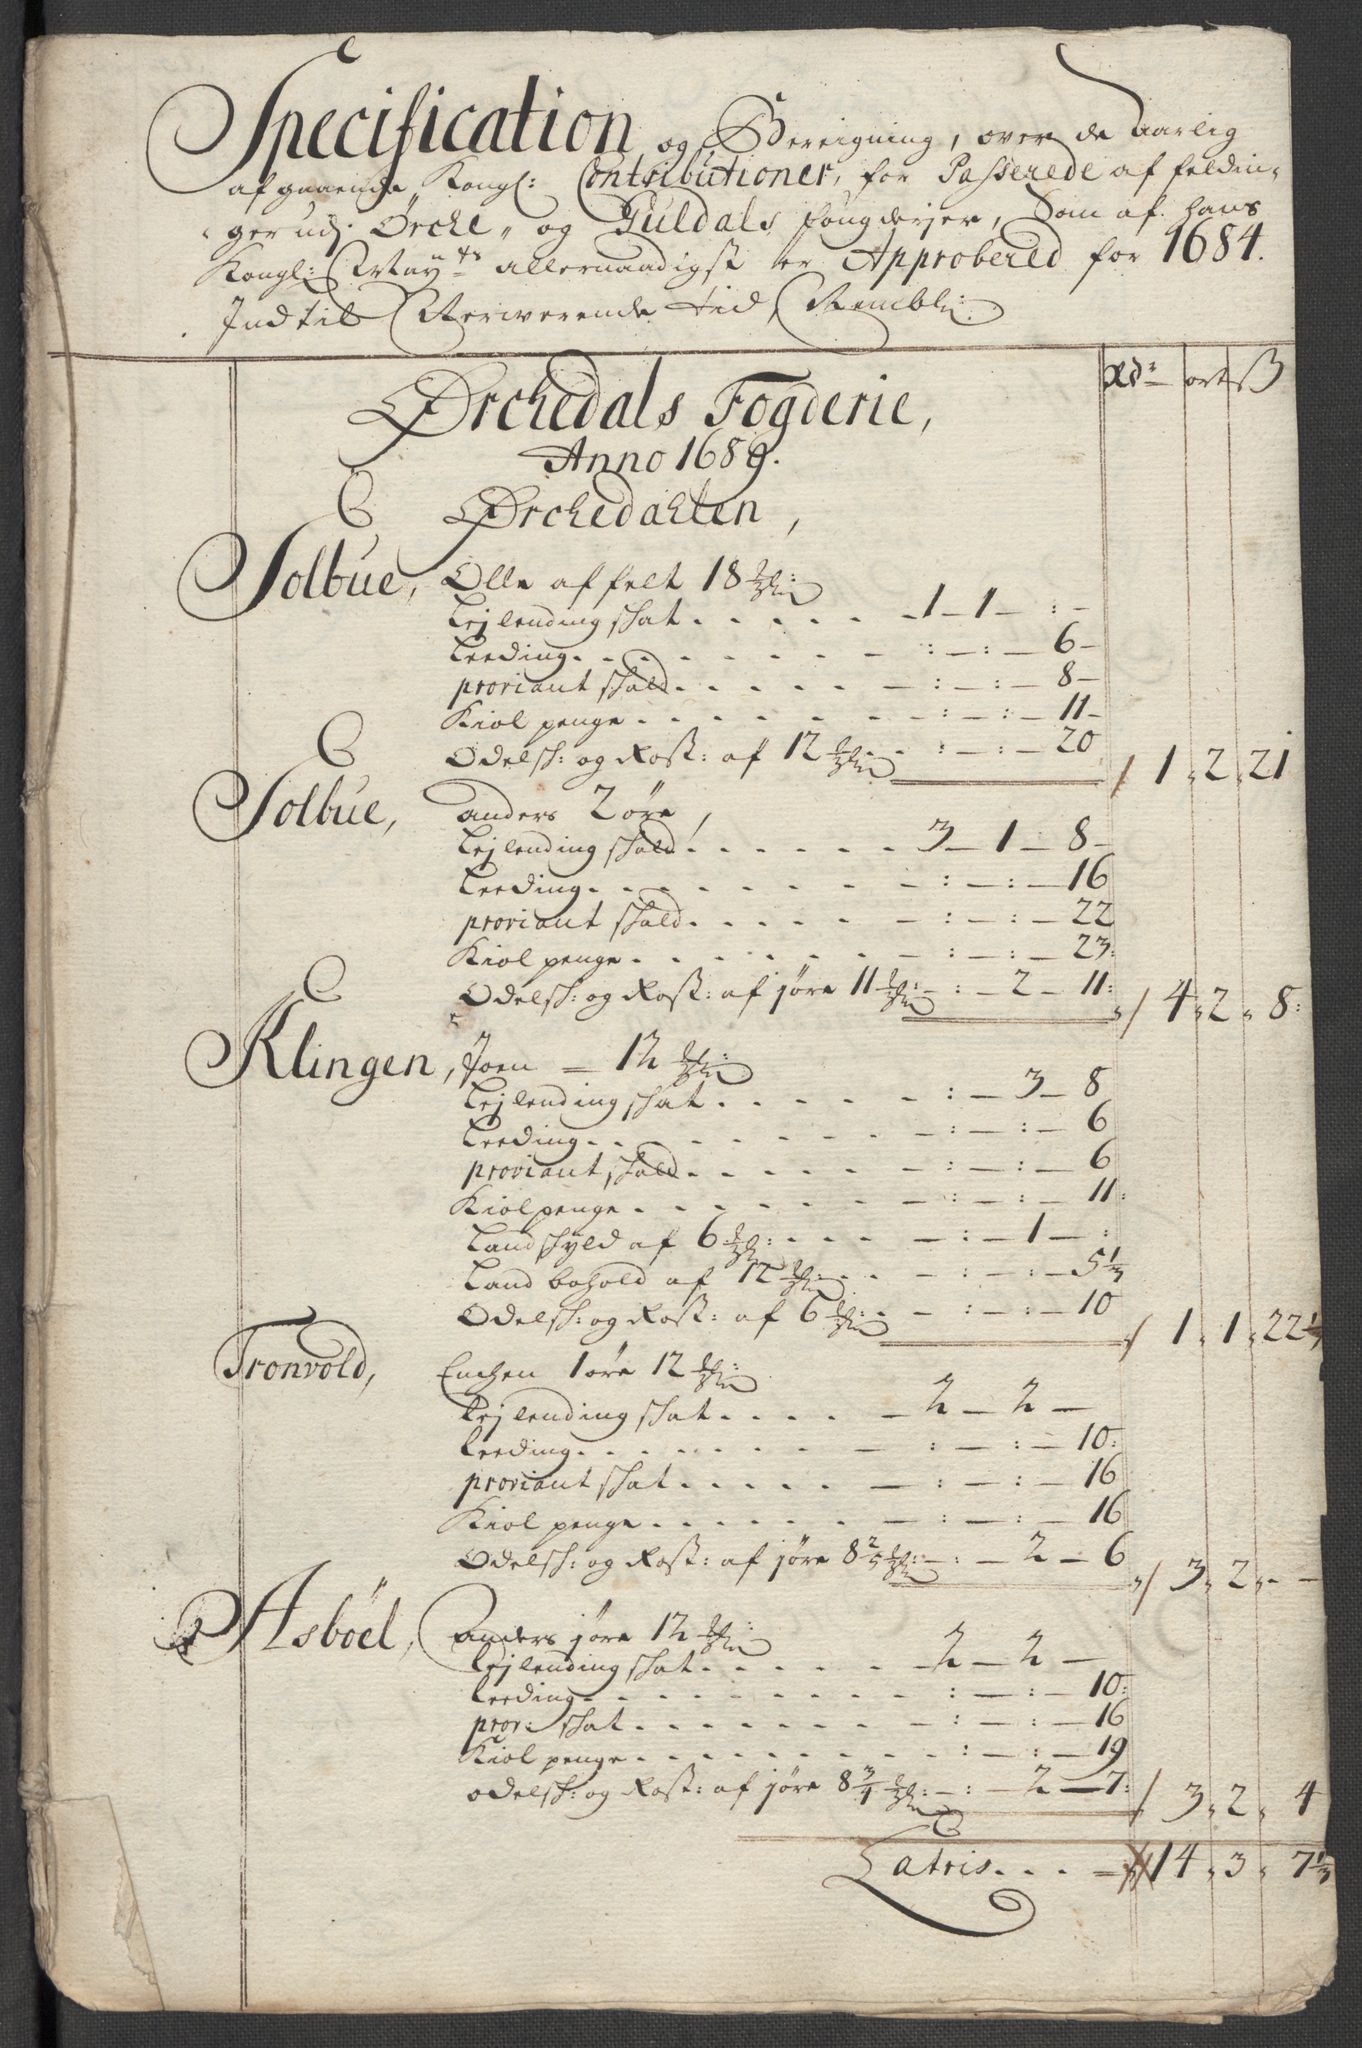 Specification og Bereigning, over de aarlig
afgaaende Kongl: Contributioner, for Passerede affeldin„
ger udj Örche„ og Guldals fougderjer, Som af hans
Kongl: Mayts allernaadigst er Approbered for 1684.
Indtil Nerwerende tid, Nembl:
Ørchedals Fogderie,
Anno 1689.
Rdr ort ß
Ørchedahlen,
Solbue, Olle af felt 18
Lejlending skat . . . . . 1 — 1 — : —
Leeding . . . . . . — : — : — 6 —
proviant skald . . . . . — : — : — 8 —
Kiol penge . . . . . . — : — : — 11 —
Odelsk: og Roß: af 12 . . : — : — 20 / 1 „ 2 „ 21
Solbue, anders 2 øre,
Lejlending skald . . . . . . 3 — 1 — 8 —
Leeding . . . . . . . — : — : — 16
proviant skald . . . . . — : — : — 22
Kiol penge . . . . . . . — : — : — 23 :
Odelsk: og Roß: af jøre 11 — : — 2 — 11 : / 4 „ 2 „ 8 :
Klingen, Joen — 12
Lejlending skat . . . . . — : — 3 — 8
Leeding . . . . . . . — : — : — 6
proviant skald . . . . . — : — : — 6
Kiol penge . . . . . . — : — : — 11 :
Landskyld af 6 : . . . — : — 1 — :
Land bohold af 12 . . — : — : — 5 1/3
Odelsk: og Roß: af 6 : . — : — : — 10 / 1 „ 1 „ 22 1/3
Tronvold, Enchen 1 øre 12
Lejlending skat . . . . — 2 — 2 —
Leeding . . . . . . . — : — : — 10 :
proviant skat . . . . . — : — : — 16
Kiol penge . . . . . . — : — : — 16
Odelsk: og Roß: af jøre 8 2/5 : — : — 2 — 6 / 3 „ 2 „ — —
Asböel, anders jøre 12
Lejlending skat . . . . . — 2 — 2 —
Leeding . . . . . . . . — : — : — 10 :
prov: skat . . . . . . . — : — : — 16
Kiol penge . . . . . . . . : — : — 19
odelsk: og Roß: af jøre 8 3/4 : — : — 2 — 7 : / 3 „ 2 „ 4
Latris . . . . — 14 „ 3 „ 7 1/3